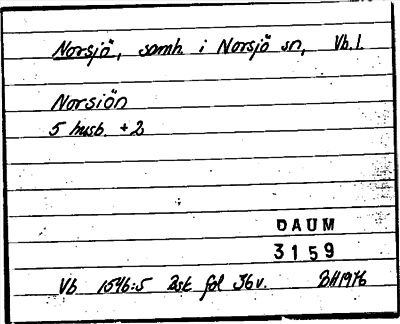 Norsjö, samh. i Norsjö sn, Vb.l.
Norsiön
5 husb. +2
DAUM
3159
Vb 1546:5 Åsk fol 36v. BH1976